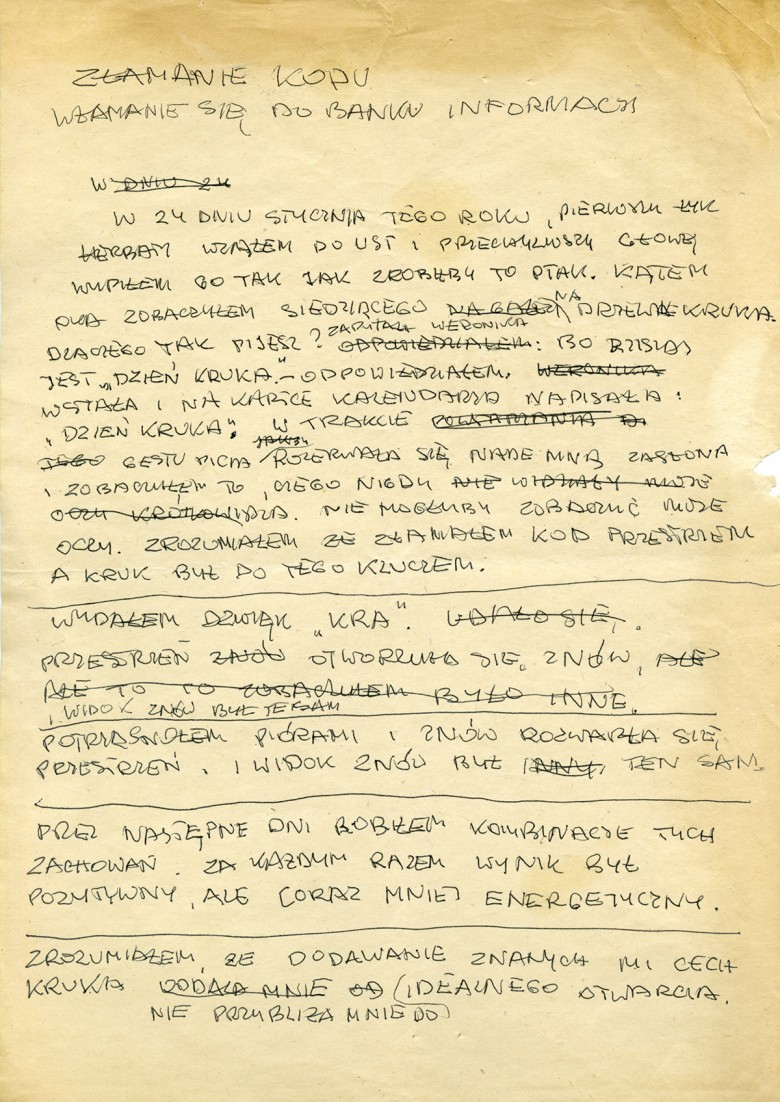 ZŁAMANIE KODU
WŁAMANIE SIĘ DO BANKU INFORMACJI
W DNIU 24
W 24 DNIU STYCZNIA TEGO ROKU, PIERWSZY ŁYK
HERBATY WZIĄŁEM DO UST I PRZECHYLIWSZY GŁOWĘ
WYPIŁEM GO TAK JAK ZROBIŁBY TO PTAK. KĄTEM
OKA ZOBACZYŁEM SIEDZĄCEGO NA GAŁĘZI NA DRZEWIE KRUKA.
DLACZEGO TAK PIJESZ? ZAPYTAŁA WERONIKA
ODPOWIEDZIAŁEM: BO DZISIAJ
JEST „DZIEŃ KRUKA." – ODPOWIEDZIAŁEM. WERONIKA
WSTAŁA I NA KARTCE KALENDARZA NAPISAŁA:
„DZIEŃ KRUKA". W TRAKCIE POWTARZANIA
TEGO GESTU PICIA ROZERWAŁA SIĘ NADE MNĄ ZASŁONA
I ZOBACZYŁEM TO, CZEGO NIGDY NIE WIDZIAŁY MOJE
OCZY NIE MOGŁYBY ZOBACZYĆ MOJE
OCZY. ZROZUMIAŁEM ŻE ZŁAMAŁEM KOD PRZESTRZENI
A KRUK BYŁ DO TEGO KLUCZEM.
WYDAŁEM DŹWIĘK „KRA". UDAŁO SIĘ.
PRZESTRZEŃ ZNÓW OTWORZYŁA SIĘ. ZNÓW, ALE
ALE TO TO ZOBACZYŁEM BYŁO INNE.
I WIDOK ZNÓW BYŁ TEN SAM
POTRZĄSNĄŁEM PIÓRAMI I ZNÓW ROZWARŁA SIĘ
PRZESTRZEŃ. I WIDOK ZNÓW BYŁ INNY, TEN SAM.
PRZEZ NASTĘPNE DNI ROBIŁEM KOMBINACJE TYCH
ZACHOWAŃ. ZA KAŻDYM RAZEM WYNIK BYŁ
POZYTYWNY, ALE CORAZ MNIEJ ENERGETYCZNY.
ZROZUMIAŁEM, ŻE DODAWANIE ZNANYCH MI CECH
KRUKA ODDALA MNIE OD IDEALNEGO OTWARCIA.
NIE PRZYBLIŻA MNIE DO